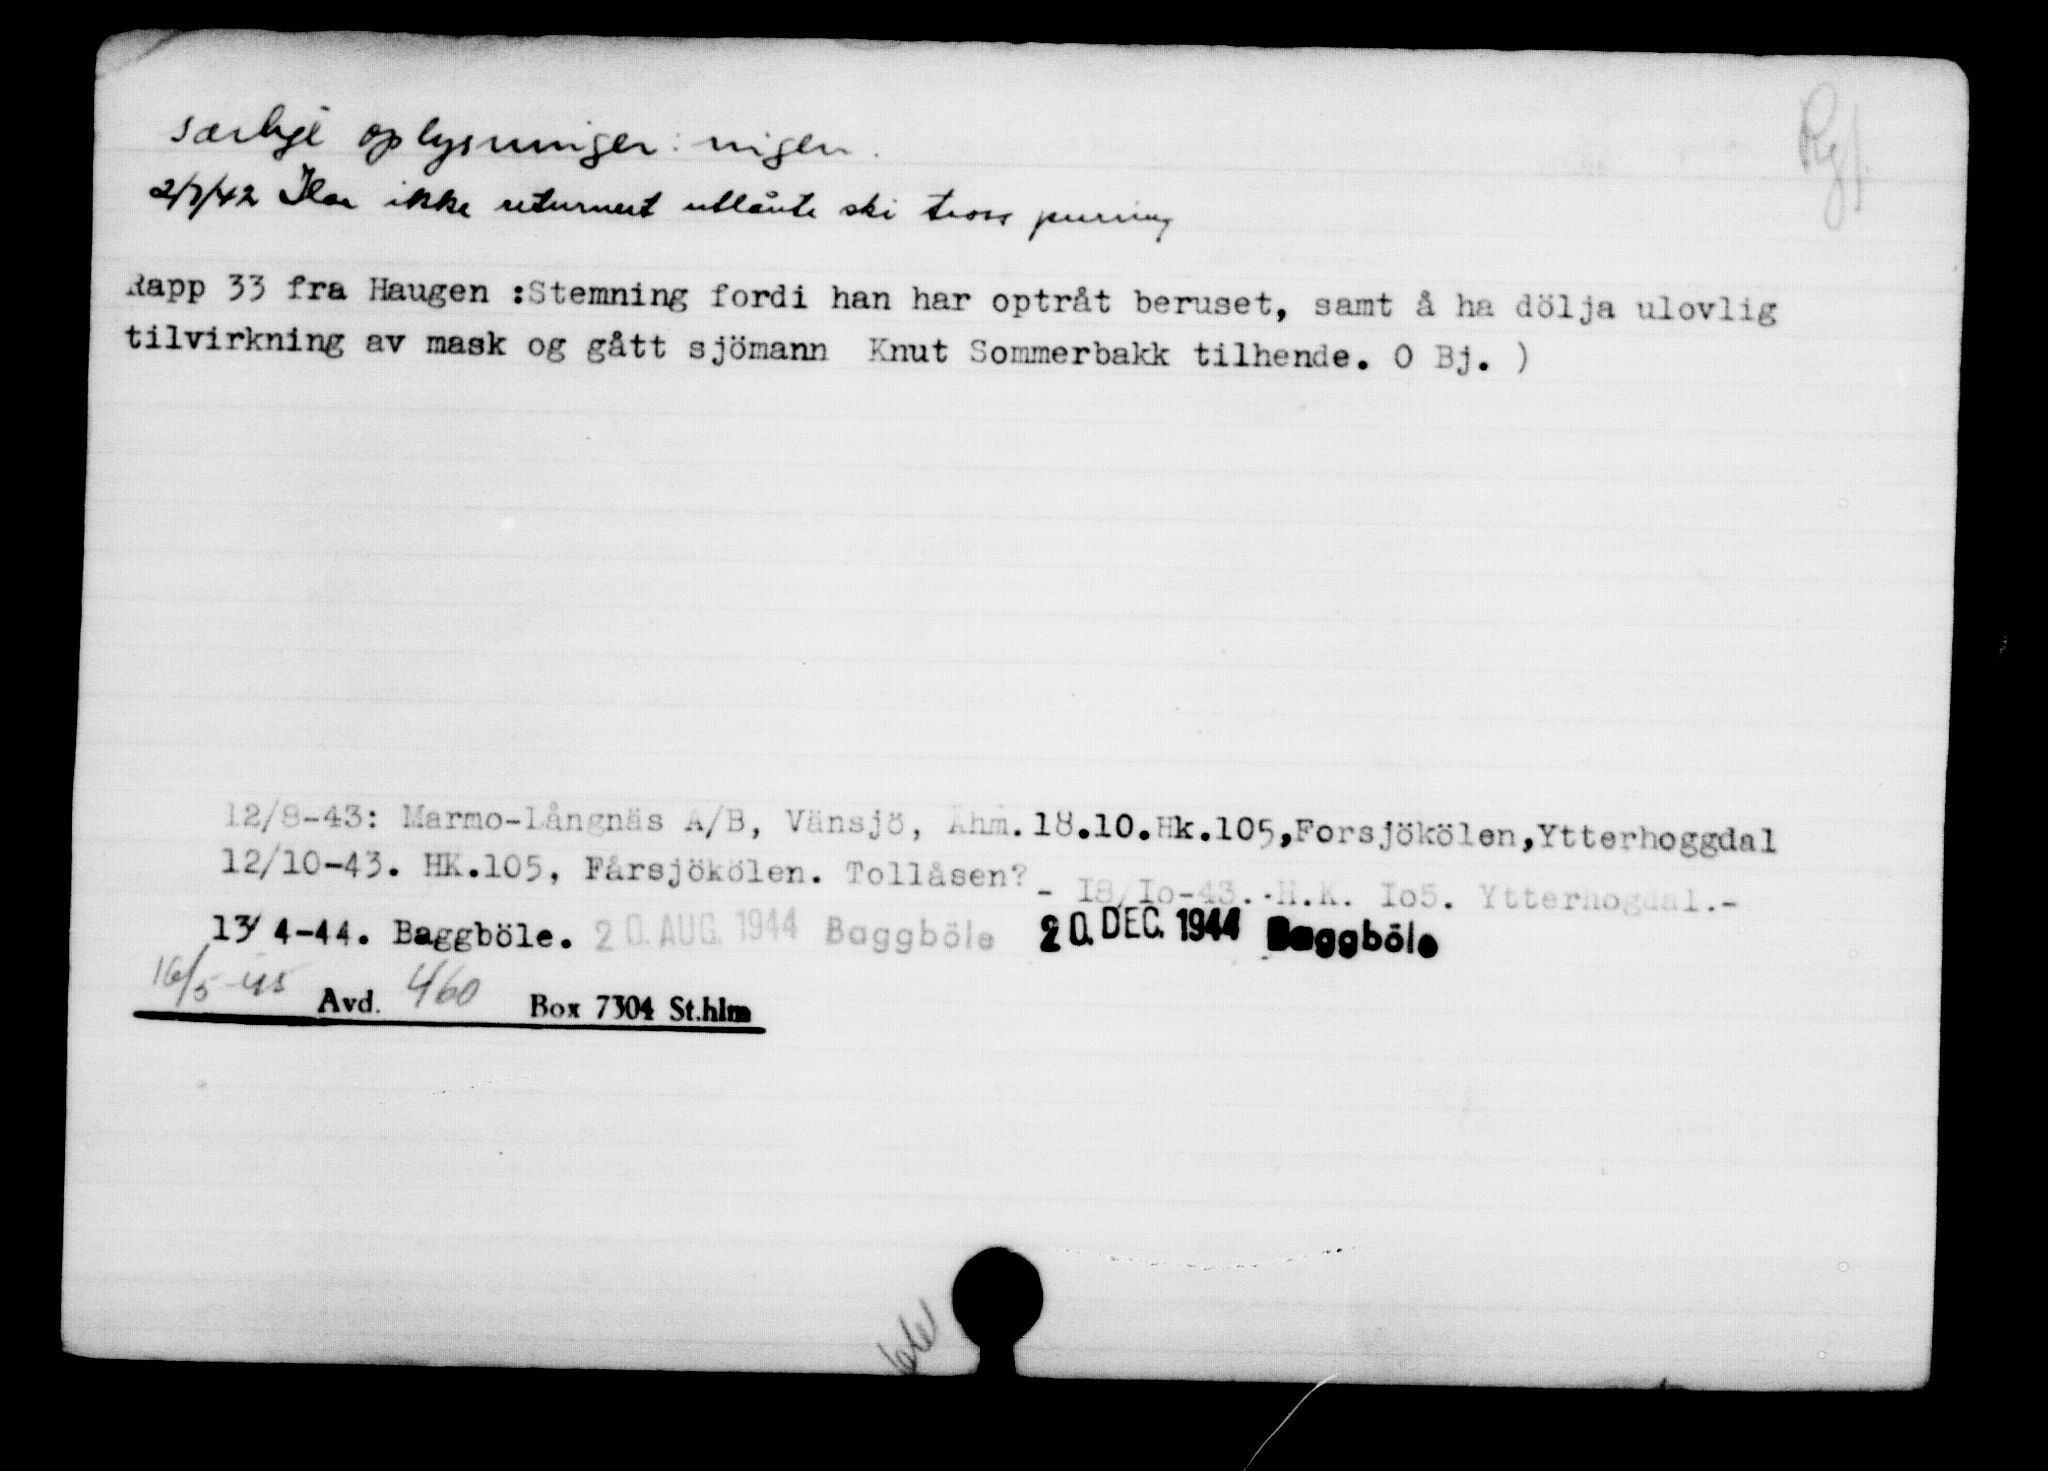 særlige oplysninger: ingen.
2/7/42 Har ikke returnert utlånte ski tross purring
Rapp 33 fra Haugen :Stemning fordi han har optråt beruset, samt å ha dölja ulovlig
tilvirkning av mask og gått sjömann Knut Sommerbakk tilhende. O Bj. )
12/8-43: Marmo-Långnäs A/B, Vänsjö, Åhm. 18.10.Hk.105,Forsjökölen,Ytterhoggdal
12/10-43. HK.105, Fårsjökölen. Tollåsen? - I8/Io-43.-H.K. Io5. Ytterhogdal.-
13/4-44. Baggböle. 20. AUG. 1944 Baggböle 20. DEC. 1944 Baggböle
16/5-45 Avd. 460 Box 7304 St.hlm